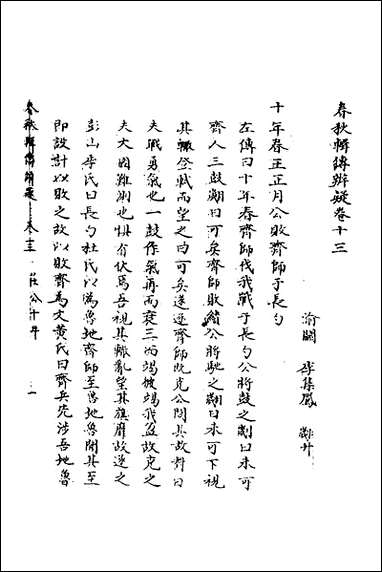 春秋輯傳辨疑卷十三
渝關 李集鳳 翽升
十年春王正月公敗齊師于長勺
左傳曰十年春齊師伐我戰于長勺公將鼓之劌曰未可
齊人三鼓劌曰可矣齊師敗績公將馳之劌曰未可下視
其轍登軾而望之曰可矣遂逐齊師既克公問其故對曰
夫戰勇氣也一鼓作氣再而衰三而竭彼竭我盈故克之
夫大國難測也懼有伏焉吾視其轍亂望其旗靡故逐之
彭山季氏曰長勺杜氏以為魯地齊師至魯地魯聞其至
即設計以敗之故以敗齊為文黃氏曰齊兵先涉吾地魯
春秋輯傳辨疑 卷十三 莊公十年 一